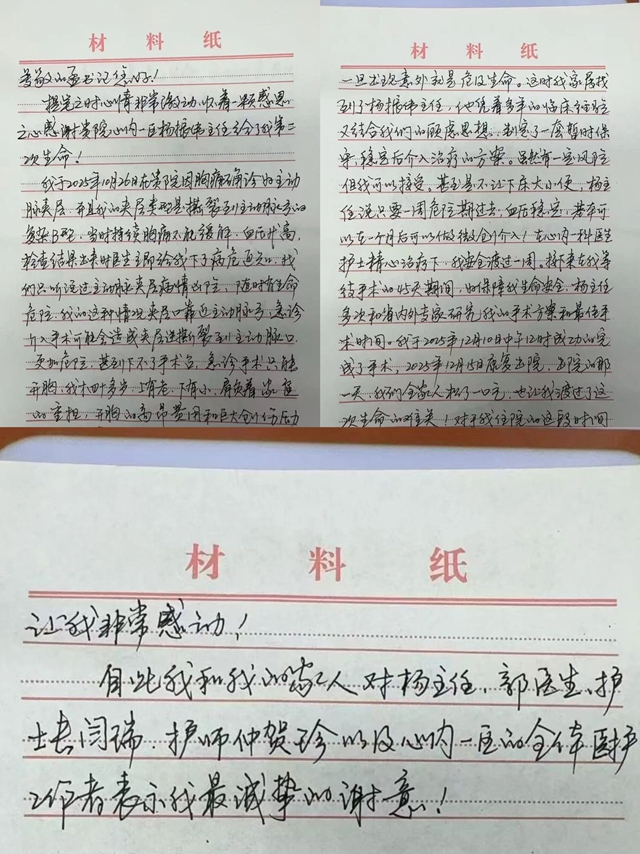 材料纸
尊敬的孟书记您好！
提笔之时心情非常激动，怀着一颗感恩
之心感谢贵院心内一区杨振伟主任给了我第二
次生命！
我于2025年10月26日在贵院因胸痛确诊为主动
脉夹层，并且我的夹层类型是撕裂到主动脉弓的
复杂B型，当时持续胸痛不能缓解，血压升高，
检查结果出来时医生立即给我下了病危通知，我
们只听说过主动脉夹层病情凶险，随时有生命
危险，我的这种情况夹层口靠近主动脉弓，急诊
介入手术可能会造成夹层逆撕裂到主动脉口，
更加危险，甚至下不了手术台，急诊手术只能
开胸，我才四十多岁，上有老，下有小，肩负着家庭
的重担，开胸的高昂费用和巨大创伤压力
材料纸
一旦出现意外就是危及生命。这时我家属找
到了杨振伟主任，他凭着多年的临床经验
又结合我们的顾虑思想，制定了一套暂时保
守，稳定后介入治疗的方案。虽然有一定风险
但我可以接受。甚至是不让下床大小便，杨主
任说只要一周危险期过去，血压稳定，若幸可
以在一个月后可以做微创介入！在心内一科医生
护士精心治疗下，我安全渡过一周。接下来在我等
待手术的45天期间，为保障我生命安全，杨主任
多次和省内外专家研究我的手术方案和最佳手
术时间。我于2025年12月10日中午12时成功的完
成了手术，2025年12月15日康复出院，出院的那
一天，我们全家人松了一口气，也让我渡过了这
次生命的难关！对于我住院的这段时间
材料纸
让我非常感动！
自此我和我的家人对杨主任、郭医生、护
士长闫瑞 护师仲贺珍以及心内一区的全体医护
工作者表示我最诚挚的谢意！